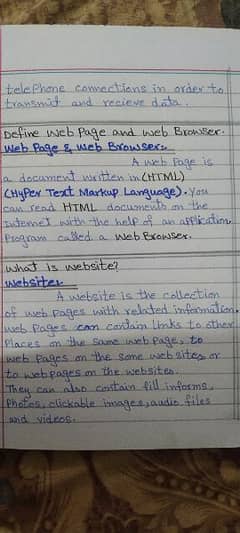 telephone connections in order to
transmit and recieve data.
Define web Page and web Browser.
Web Page & web Browser:
A web Page is
a document written in (HTML)
(Hyper Text Markup Language). You
can read HTML documents on the
Internet with the help of an application
Program called a Web Browser.
what is website?
website:
A website is the collection
of web pages with related information.
web Pages can contain links to other
Places on the same web page, to
web pages on the same web sites or
to web pages on the websites.
They can also contain fill informs,
Photos, clickable images, audio files
and videos.